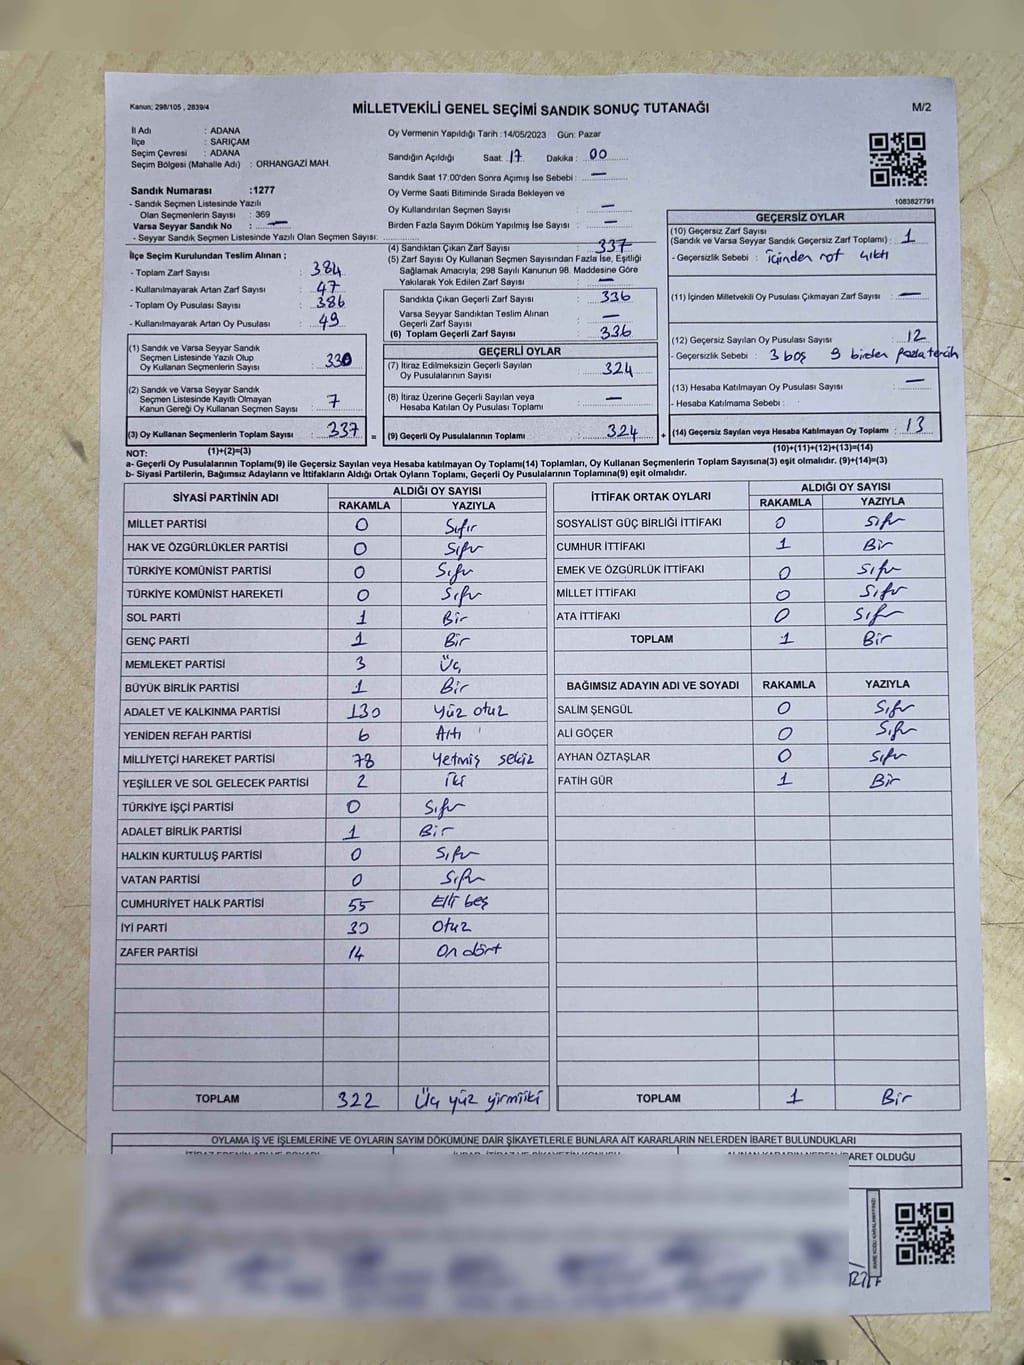 Kanun; 298/105 , 2839/4
MİLLETVEKİLİ GENEL SEÇİMİ SANDIK SONUÇ TUTANAĞI
M/2
İl Adı : ADANA
İlçe : SARIÇAM
Seçim Çevresi : ADANA
Seçim Bölgesi (Mahalle Adı) : ORHANGAZİ MAH.
Sandık Numarası :1277
- Sandık Seçmen Listesinde Yazılı
Olan Seçmenlerin Sayısı : 369
Varsa Seyyar Sandık No : —
- Seyyar Sandık Seçmen Listesinde Yazılı Olan Seçmen Sayısı:
Oy Vermenin Yapıldığı Tarih :14/05/2023 Gün: Pazar
Sandığın Açıldığı Saat: 17 Dakika : 00
Sandık Saat 17:00'den Sonra Açımış İse Sebebi : —
Oy Verme Saati Bitiminde Sırada Bekleyen ve
Oy Kullandırılan Seçmen Sayısı —
Birden Fazla Sayım Döküm Yapılmış İse Sayısı : —
1083827791
İlçe Seçim Kurulundan Teslim Alınan ;
- Toplam Zarf Sayısı : 384
- Kullanılmayarak Artan Zarf Sayısı : 47
- Toplam Oy Pusulası Sayısı : 386
- Kullanılmayarak Artan Oy Pusulası : 49
(1) Sandık ve Varsa Seyyar Sandık
Seçmen Listesinde Yazılı Olup
Oy Kullanan Seçmenlerin Sayısı : 330
(2) Sandık ve Varsa Seyyar Sandık
Seçmen Listesinde Kayıtlı Olmayan
Kanun Gereği Oy Kullanan Seçmen Sayısı : 7
(3) Oy Kullanan Seçmenlerin Toplam Sayısı : 337 =
(4) Sandıktan Çıkan Zarf Sayısı : 337
(5) Zarf Sayısı Oy Kullanan Seçmen Sayısından Fazla İse, Eşitliği
Sağlamak Amacıyla; 298 Sayılı Kanunun 98. Maddesine Göre
Yakılarak Yok Edilen Zarf Sayısı : —
Sandıkta Çıkan Geçerli Zarf Sayısı : 336
Varsa Seyyar Sandıktan Teslim Alınan
Geçerli Zarf Sayısı : —
(6) Toplam Geçerli Zarf Sayısı : 336
GEÇERLİ OYLAR
(7) İtiraz Edilmeksizin Geçerli Sayılan
Oy Pusulalarının Sayısı : 324
(8) İtiraz Üzerine Geçerli Sayılan veya
Hesaba Katılan Oy Pusulası Toplamı : —
(9) Geçerli Oy Pusulalarının Toplamı : 324 +
GEÇERSİZ OYLAR
(10) Geçersiz Zarf Sayısı
(Sandık ve Varsa Seyyar Sandık Geçersiz Zarf Toplamı) : 1
- Geçersizlik Sebebi : içinden not çıktı
(11) İçinden Milletvekili Oy Pusulası Çıkmayan Zarf Sayısı : —
(12) Geçersiz Sayılan Oy Pusulası Sayısı : 12
- Geçersizlik Sebebi : 3 boş 9 birden fazla tercih
(13) Hesaba Katılmayan Oy Pusulası Sayısı : —
- Hesaba Katılmama Sebebi :
(14) Geçersiz Sayılan veya Hesaba Katılmayan Oy Toplamı : 13
NOT: (1)+(2)=(3) (10)+(11)+(12)+(13)=(14)
a- Geçerli Oy Pusulalarının Toplamı(9) ile Geçersiz Sayılan veya Hesaba katılmayan Oy Toplamı(14) Toplamları, Oy Kullanan Seçmenlerin Toplam Sayısına(3) eşit olmalıdır. (9)+(14)=(3)
b- Siyasi Partilerin, Bağımsız Adayların ve İttifakların Aldığı Ortak Oyların Toplamı, Geçerli Oy Pusulalarının Toplamına(9) eşit olmalıdır.
SİYASİ PARTİNİN ADI ALDIĞI OY SAYISI
RAKAMLA YAZIYLA
MİLLET PARTİSİ 0 Sıfır
HAK VE ÖZGÜRLÜKLER PARTİSİ 0 Sıfır
TÜRKİYE KOMÜNİST PARTİSİ 0 Sıfır
TÜRKİYE KOMÜNİST HAREKETİ 0 Sıfır
SOL PARTİ 1 Bir
GENÇ PARTİ 1 Bir
MEMLEKET PARTİSİ 3 Üç
BÜYÜK BİRLİK PARTİSİ 1 Bir
ADALET VE KALKINMA PARTİSİ 130 yüz otuz
YENİDEN REFAH PARTİSİ 6 Altı
MİLLİYETÇİ HAREKET PARTİSİ 78 Yetmiş sekiz
YEŞİLLER VE SOL GELECEK PARTİSİ 2 İki
TÜRKİYE İŞÇİ PARTİSİ 0 Sıfır
ADALET BİRLİK PARTİSİ 1 Bir
HALKIN KURTULUŞ PARTİSİ 0 Sıfır
VATAN PARTİSİ 0 Sıfır
CUMHURİYET HALK PARTİSİ 55 Elli beş
İYİ PARTİ 30 Otuz
ZAFER PARTİSİ 14 On dört
TOPLAM 322 Üç yüz yirmiiki
İTTİFAK ORTAK OYLARI ALDIĞI OY SAYISI
RAKAMLA YAZIYLA
SOSYALİST GÜÇ BİRLİĞİ İTTİFAKI 0 Sıfır
CUMHUR İTTİFAKI 1 Bir
EMEK VE ÖZGÜRLÜK İTTİFAKI 0 Sıfır
MİLLET İTTİFAKI 0 Sıfır
ATA İTTİFAKI 0 Sıfır
TOPLAM 1 Bir
BAĞIMSIZ ADAYIN ADI VE SOYADI RAKAMLA YAZIYLA
SALİM ŞENGÜL 0 Sıfır
ALİ GÖÇER 0 Sıfır
AYHAN ÖZTAŞLAR 0 Sıfır
FATİH GÜR 1 Bir
TOPLAM 1 Bir
OYLAMA İŞ VE İŞLEMLERİNE VE OYLARIN SAYIM DÖKÜMÜNE DAİR ŞİKAYETLERLE BUNLARA AİT KARARLARIN NELERDEN İBARET BULUNDUKLARI
BARET OLDUĞU